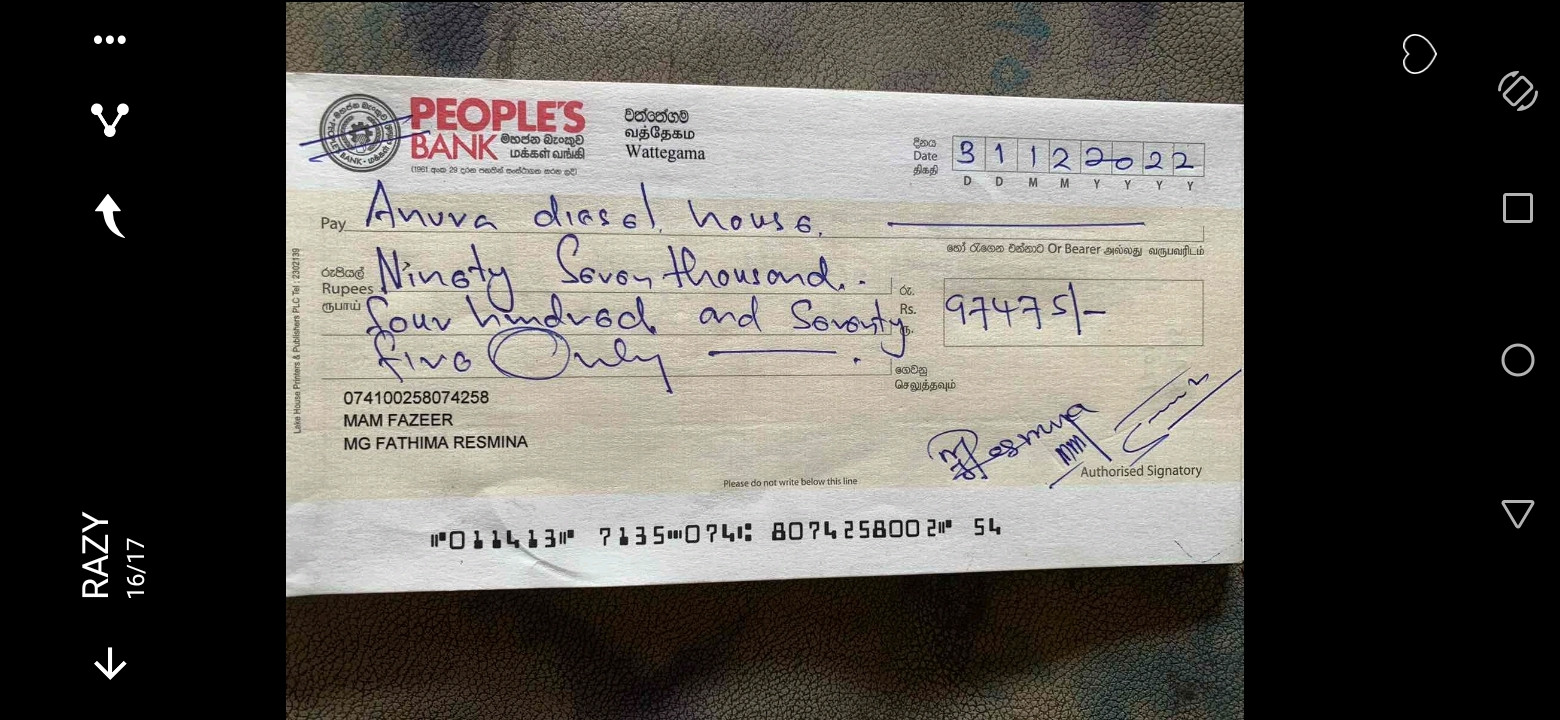 PEOPLE'S
BANK මහජන බැංකුව
மக்கள் வங்கி
(1961 අංක 29 දරන පනතින් සංස්ථාගත කරන ලදි)
වත්තේගම
வத்தேகம
Wattegama
දිනය
Date
திகதி
31122022
D D M M Y Y Y Y
Pay Anura diesel house.
හෝ රැගෙන එන්නාට Or Bearer அல்லது வருபவரிடம்
රුපියල්
Rupees
ரூபாய்
Ninety Seven thousand.
four hundred and Seventy
five Only
රු.
Rs.
ரூ.
97475/-
ගෙවනු
செலுத்தவும்
074100258074258
MAM FAZEER
MG FATHIMA RESMINA
Authorised Signatory
Please do not write below this line
011413 7135 074 8074258002 54
Lake House Printers & Publishers PLC Tel : 2302139
RAZY
16/17